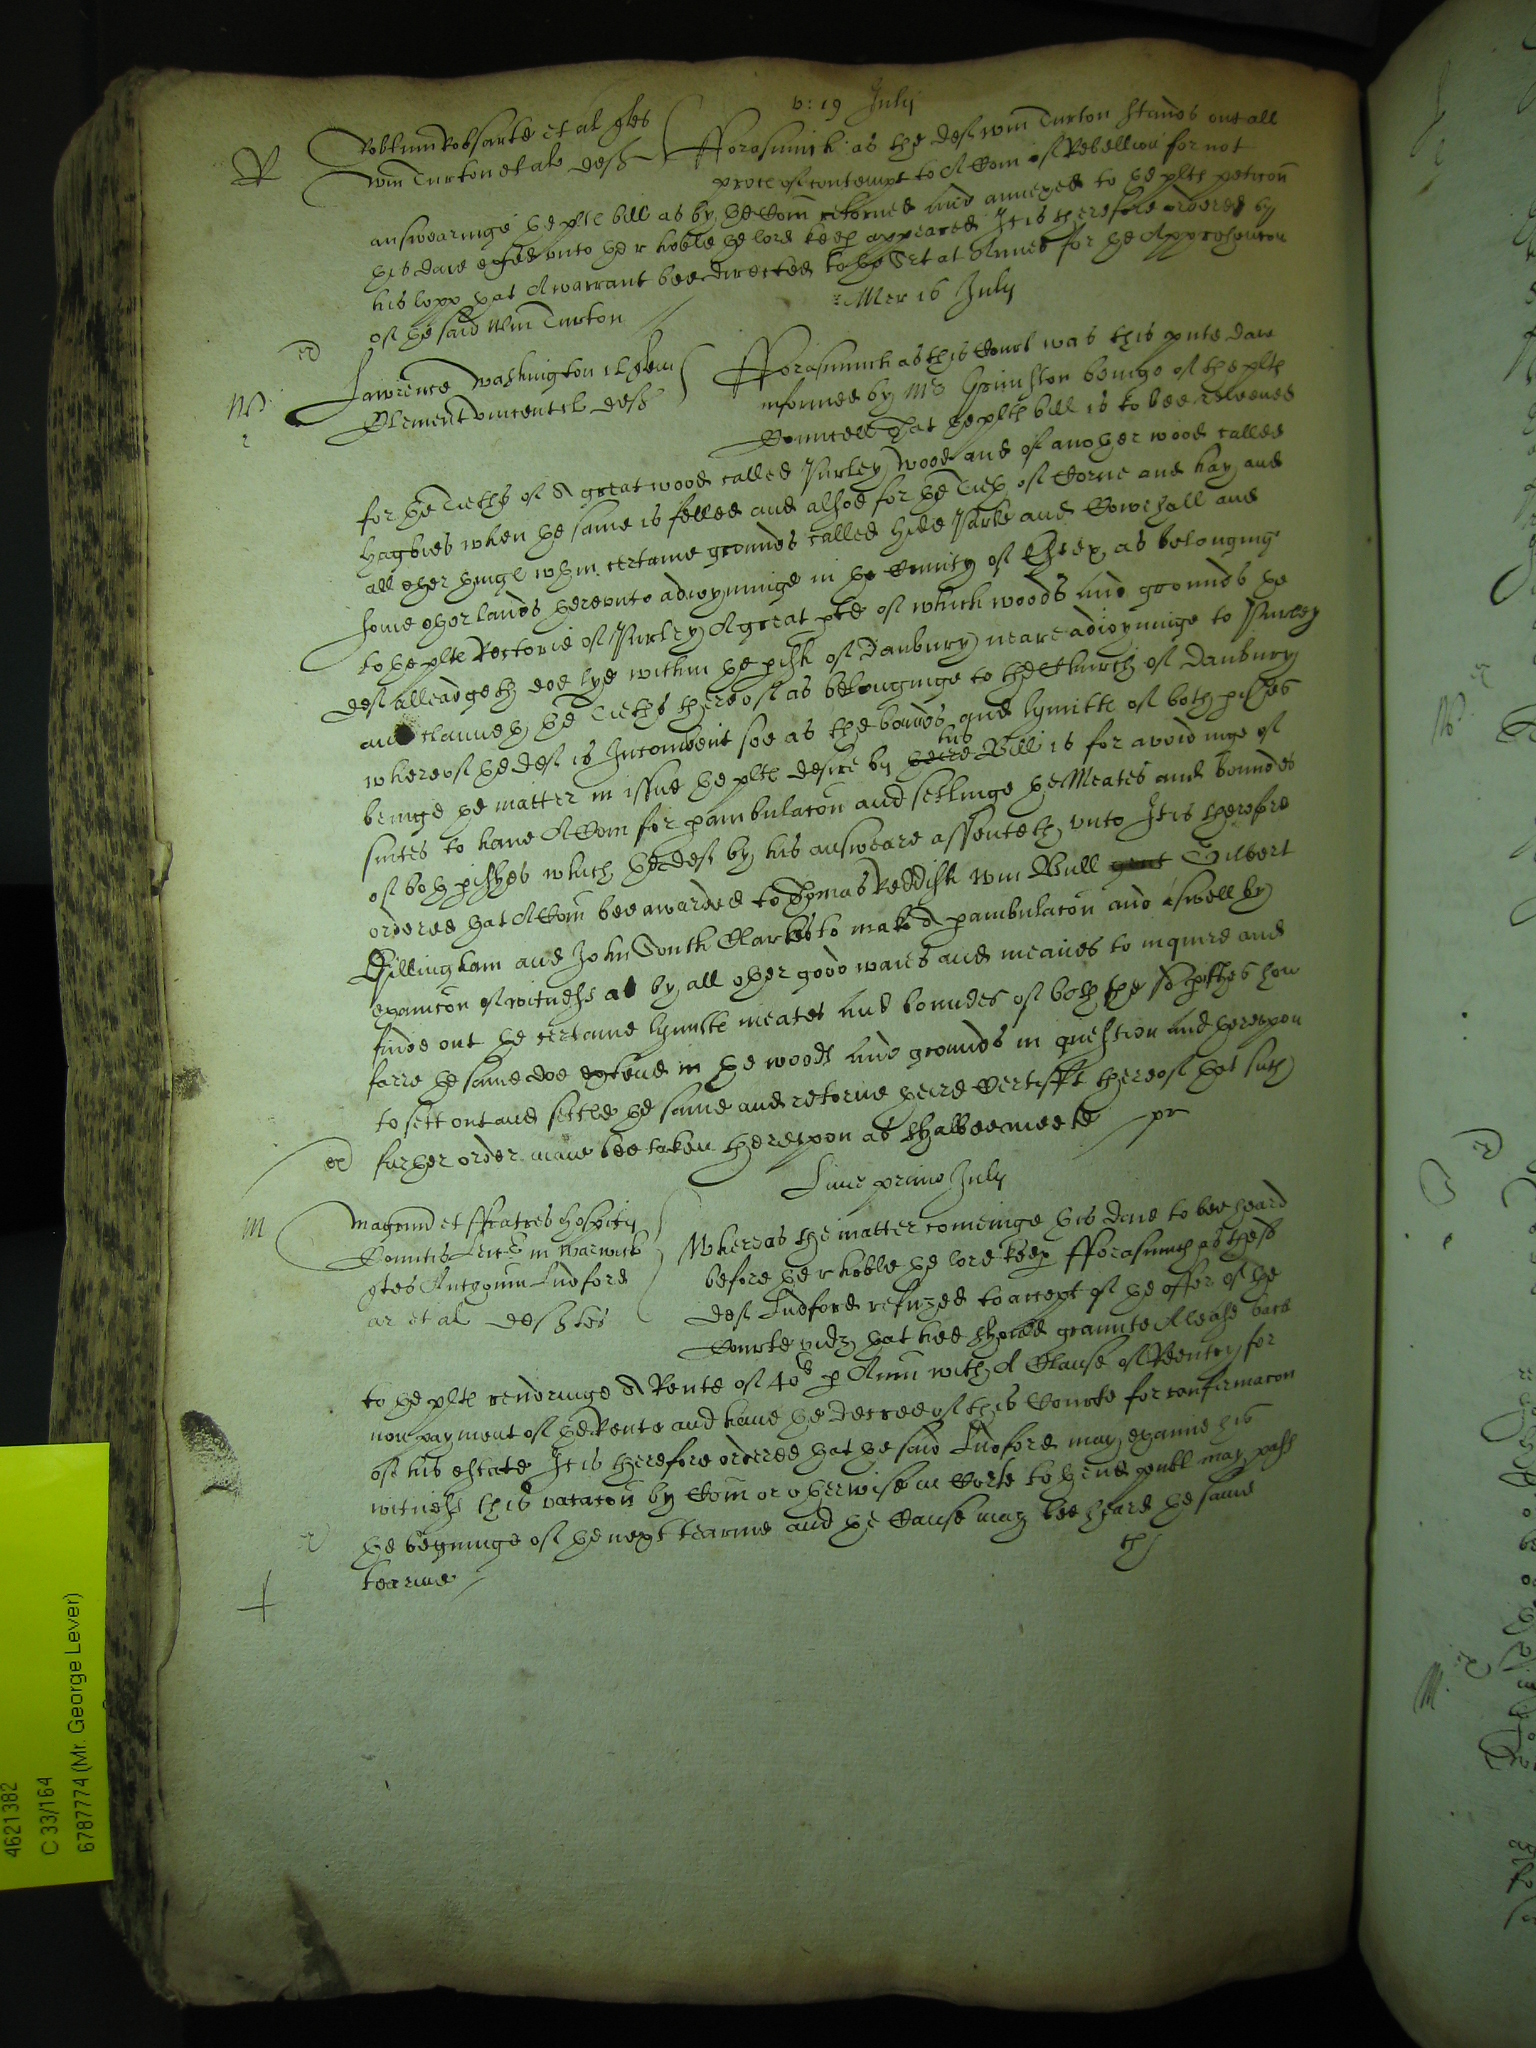 v: 19 July
R
Robtum Robsarte et al ples
Wm Turton et al defts
Fforasmuch as the deft Wm Turton stands out all
proces of contempt to A Com of Rebellion for not
answearinge ye plts bill as by ye Com retorned and annexed to ye plts peticon
this daie unto ye r hoble ye lord keep appeared It is therefore ordered by
his lopp yat A warrant bee directed to ye Sert at Armes for ye Apprehencon
of ye said Wm Turton
Mer 16 July
W
Lawrence Washington cl plem
Clement Vincent cl deft
Fforasmuch as this Court was this pnte daie
informed by Mr Grimston beinge of the plts
Councell that ye plts bill is to bee releeved
for ye Tieths of A great wood called Purley wood and of another wood called
Hagbies when ye same is felled and alsoe for ye Tieth of Corne and hay and
all other things wthin certaine grounds called hide Parke and Cowehall and
some other lands thereunto adioyninge in ye County of Essex as belonginge
to ye plts Rectorie of Purley A great pte of which woods and grounds ye
deft alleadgeth doe lye within ye pish of Danbury neare adioyninge to Purley
and claimeth ye Tieths thereof as belonginge to the Church of Danbury
whereof ye deft is Incombent soe as the bounds and lymitts of both pishes
beinge ye matter in issue ye plts desire by his Bill is for avoidinge of
suites to have A Com for pambulacon and setlinge ye Meates and boundes
of both pishes which ye deft by his answeare assenteth unto It is therefore
ordered yat A Com bee awarded to Thomas Reddish Wm Bull Gilbert
Dillingham and John South Clarkes to make A pambulacon and aswell by
examicon of witnesses as by all other good waies and meanes to inquire and
finde out ye certaine lymitts meates and boundes of both the sd pishes how
farre ye same doe extend in ye woods and grounds in question and thereupon
to sett out and settle ye same and retorne their Certifft thereof yat such
further order maie bee taken thereupon as shalbee meete
pr
Lune primo July
M
Magrum et ffratres Hospitij
Comitis Leic in Warwick
ples Anthonium Ludford
ar et al deftes
Whereas the matter comeinge this daie to bee heard
before ye r hoble ye lord keep fforasmuch as the
deft Ludford refuzed to accept of ye offer of ye
Courte vidz yat hee should graunte A lease back
to ye plts rendringe A Rente of 40s p Ann with A Clause of Reentry for
non payment of ye Rente and have ye decree of this Courte for confirmacon
of his estate It is therefore ordered yat ye said Ludford may examine his
witnesses this vacacon by Com or otherwise in Corte to th end publ may passe
ye begninge of ye next tearme and ye Cause may bee heard ye same
tearme
th
4621382
C 33/164
6787774 (Mr. George Lever)